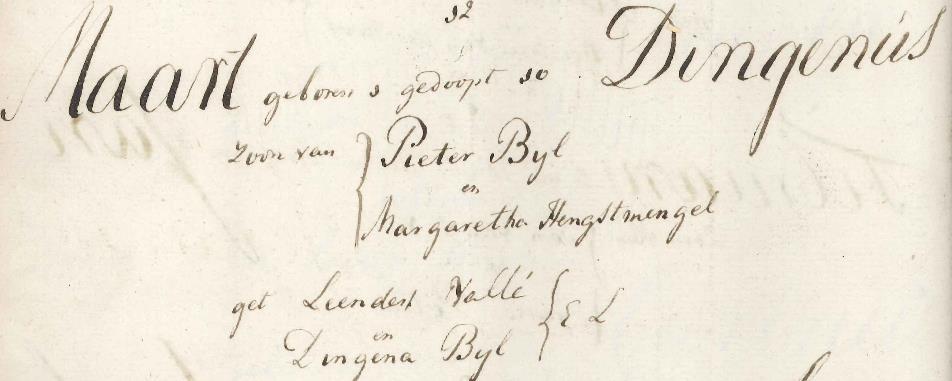 12
Maart geboren 1 gedoopt 10 Dingenus
zoon van } Pieter Byl
en
Margaretha Hengstmengel
get Leendert Vallé } E L
en
Dingena Byl